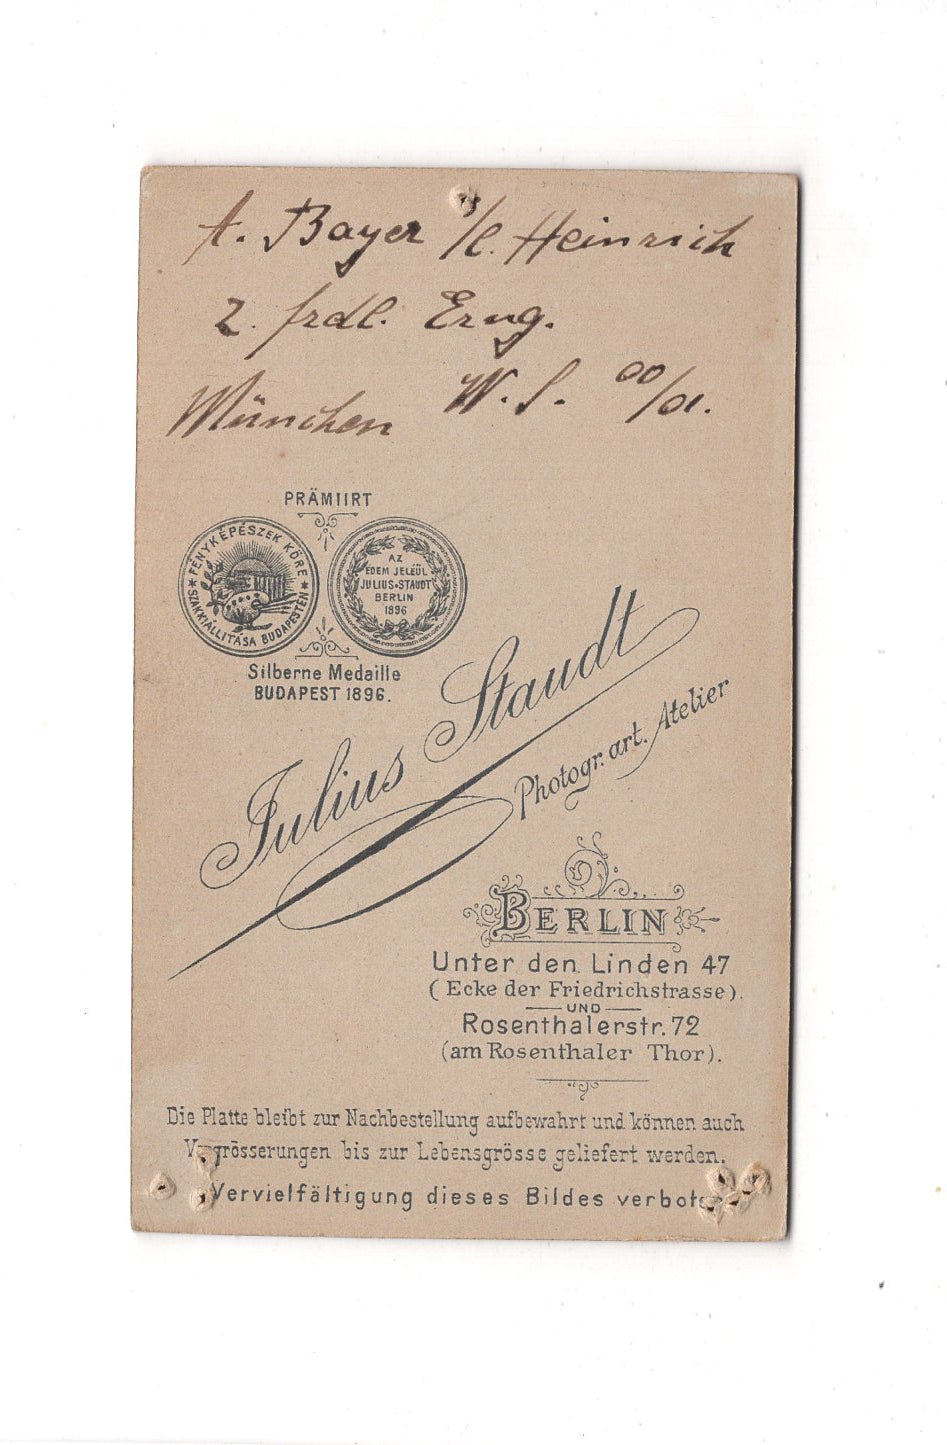 A. Bayer s/l. Heinrich
z. frdl. Erng.
München W. S. 00/01.
PRÄMIIRT
FÉNYKÉPÉSZEK KÖRE
SZAKKIÁLLITÁSA BUDAPESTEN
AZ
EDEM JELEÜL
JULIUS STAUDT
BERLIN
1896
Silberne Medaille
BUDAPEST 1896.
Julius Staudt
Photogr. art. Atelier
BERLIN
Unter den Linden 47
(Ecke der Friedrichstrasse).
UND
Rosenthalerstr. 72
(am Rosenthaler Thor).
Die Platte bleibt zur Nachbestellung aufbewahrt und können auch
Vergrösserungen bis zur Lebensgrösse geliefert werden.
Vervielfältigung dieses Bildes verboten